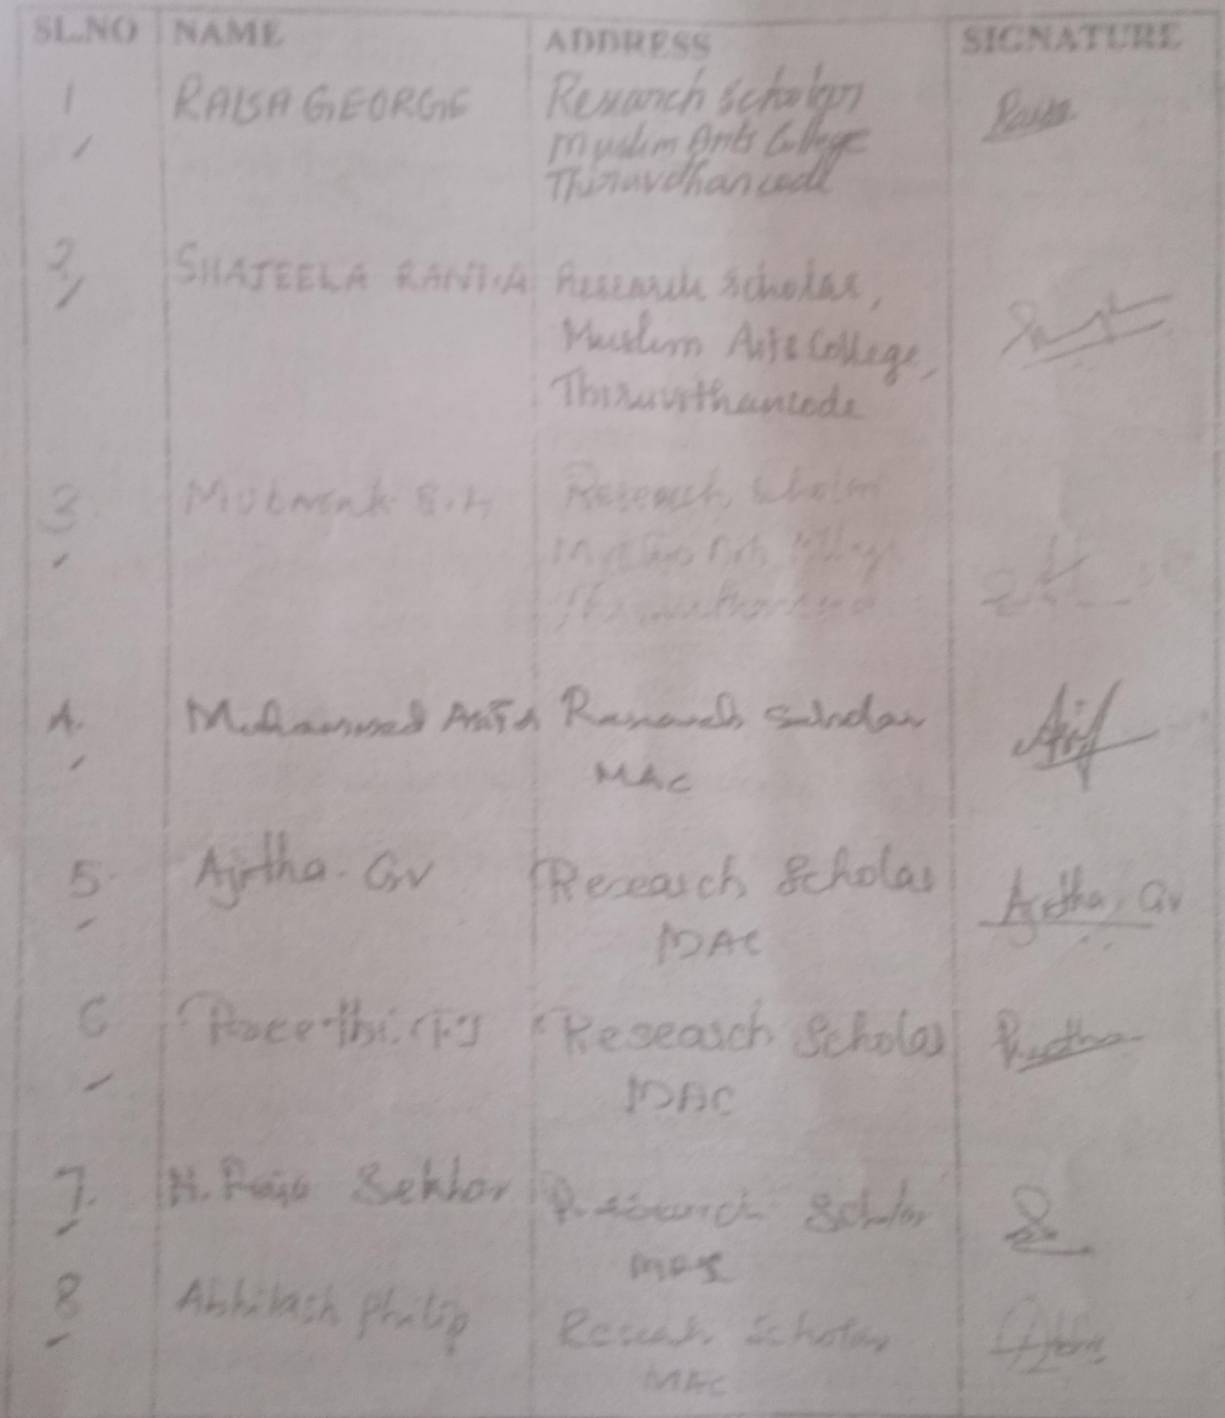 SL.NO NAME ADDRESS SIGNATURE
1 RAISA GEORGE Research Scholar
Muslim Arts College
Thiruvdhancode
2 SHAJEELA RANI.A Research Scholar,
Muslim Arts College,
Thiruvithancode
3 Mubarak S.H Research Scholar
Muslim Arts College
4. Mohammed Research Scholar Arif
MAC
5. Ajitha. GV Research Scholar Ajitha. GV
MAC
6 Preethi. Research Scholar
MAC
7. H. Raja Sekhar Research Scholar
8 Abhilash Philip Research Scholar
MAC